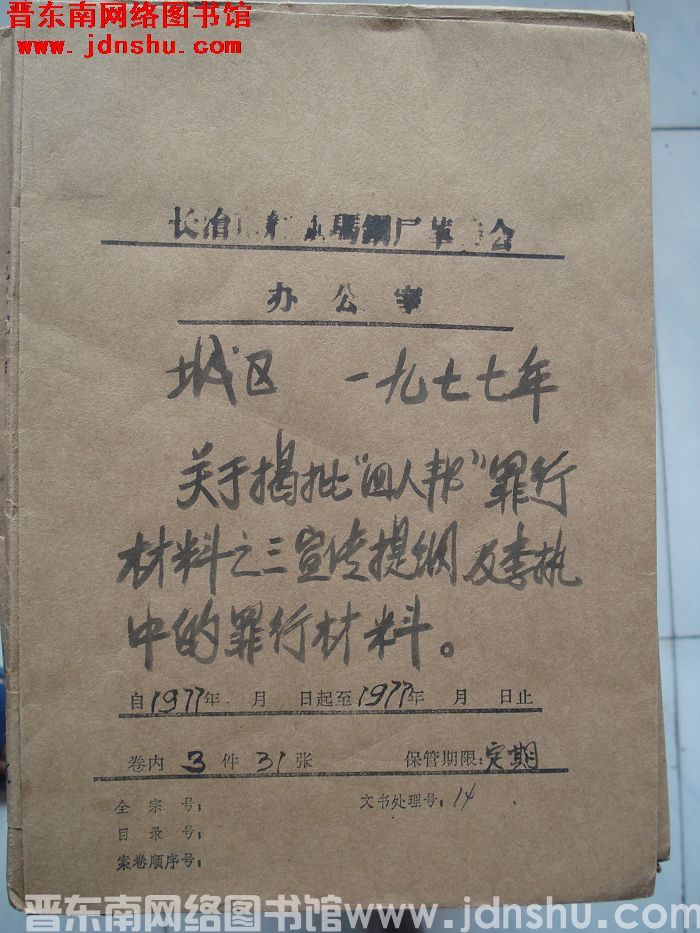 晋东南网络图书馆
www.jdnshu.com
长治 玛钢厂革 会
办公室
城区 一九七七年
关于揭批“四人帮”罪行
材料之三宣传提纲及李执
中的罪行材料。
自1977年 月 日起至1977年 月 日止
卷内3件31张 保管期限:定期
全宗号: 文书处理号:14
目录号:
案卷顺序号:
晋东南网络图书馆www.jdnshu.com